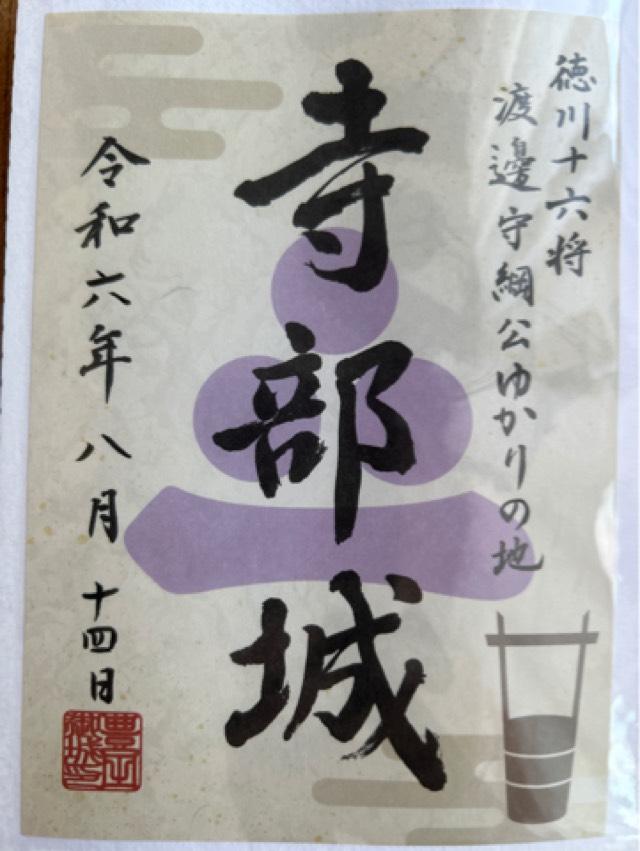 徳川十六将
渡邊守綱公ゆかりの地
寺部城
令和六年八月十四日